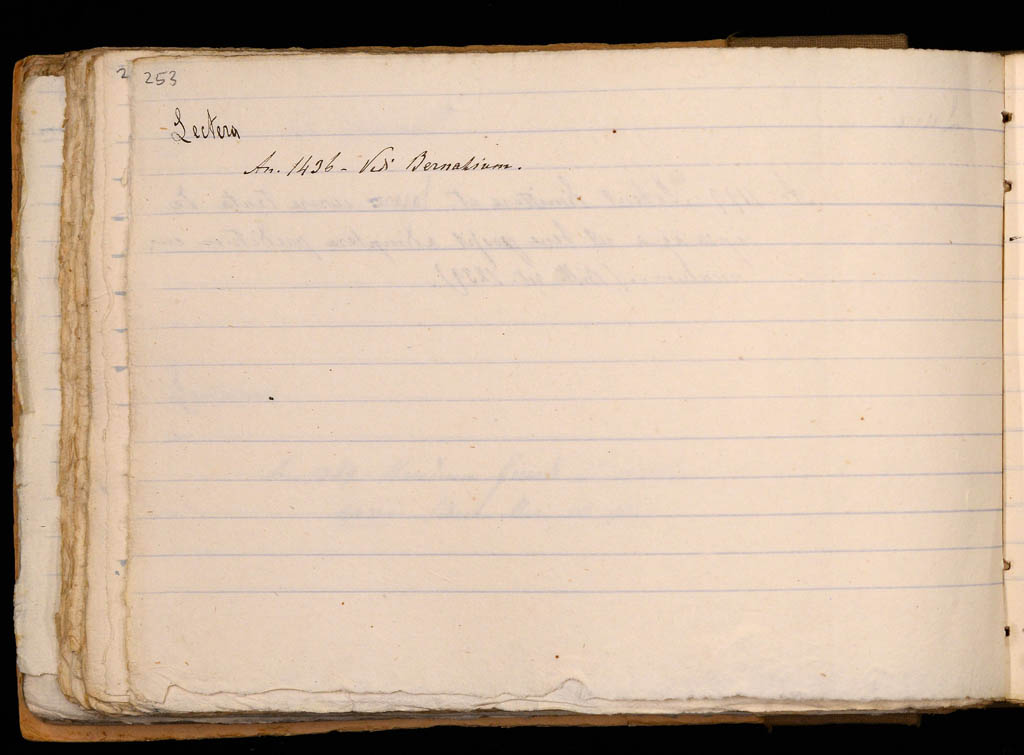 253
Lectera
An. 1436 - Vidi Bernatium.